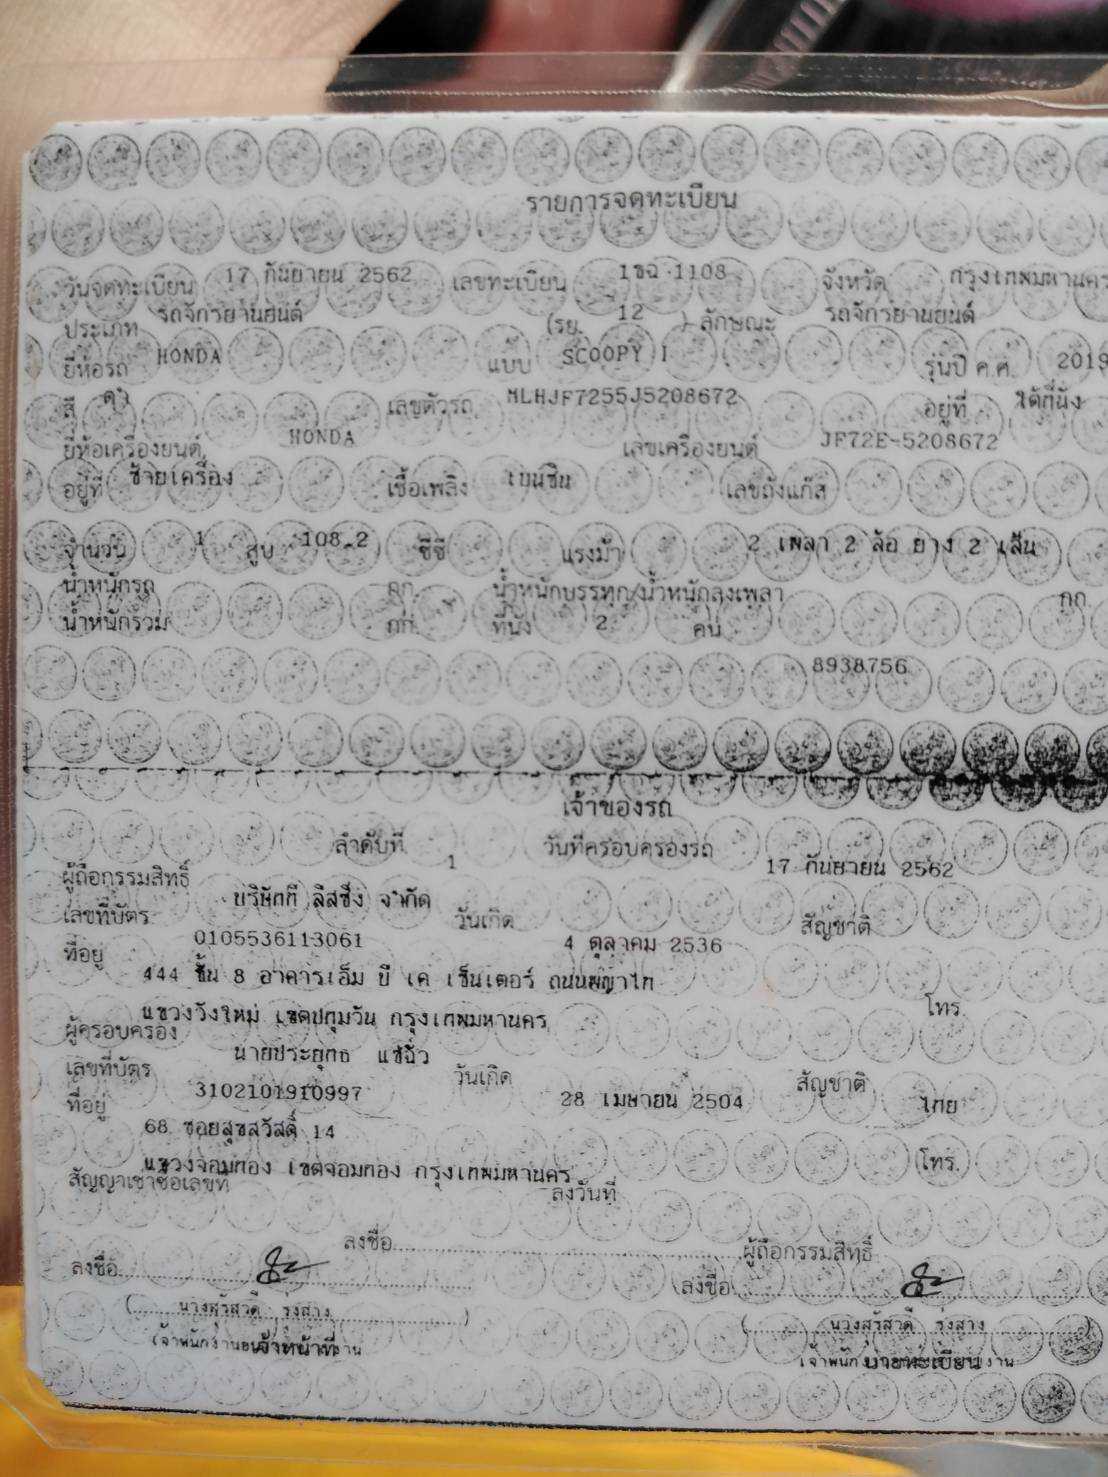 รายการจดทะเบียน
วันจดทะเบียน 17 กันยายน 2562 เลขทะเบียน 1ขฉ 1108 จังหวัด กรุงเทพมหานคร
ประเภท รถจักรยานยนต์ (รย. 12 ) ลักษณะ รถจักรยานยนต์
ยี่ห้อรถ HONDA แบบ SCOOPY I รุ่นปี ค.ศ. 2019
สี ดำ เลขตัวรถ MLHJF7255J5208672 อยู่ที่ ใต้ที่นั่ง
ยี่ห้อเครื่องยนต์ HONDA เลขเครื่องยนต์ JF72E-5208672
อยู่ที่ ซ้ายเครื่อง เชื้อเพลิง เบนซิน เลขถังแก๊ส
จำนวน 1 สูบ 108.2 ซีซี แรงม้า 2 เพลา 2 ล้อ ยาง 2 เส้น
น้ำหนักรถ กก. น้ำหนักบรรทุก/น้ำหนักลงเพลา กก.
น้ำหนักรวม กก. ที่นั่ง 2 คน
8938756
เจ้าของรถ
ลำดับที่ 1 วันที่ครอบครองรถ 17 กันยายน 2562
ผู้ถือกรรมสิทธิ์ บริษัทที ลิสซิ่ง จำกัด
เลขที่บัตร 0105536113061 วันเกิด 4 ตุลาคม 2536 สัญชาติ
ที่อยู่ 444 ชั้น 8 อาคารเอ็ม บี เค เซ็นเตอร์ ถนนพญาไท
แขวงวังใหม่ เขตปทุมวัน กรุงเทพมหานคร โทร.
ผู้ครอบครอง นายประยุทธ แซ่ฉั่ว
เลขที่บัตร 3102101910997 วันเกิด 28 เมษายน 2504 สัญชาติ ไทย
ที่อยู่ 68 ซอยสุขสวัสดิ์ 14
แขวงจอมทอง เขตจอมทอง กรุงเทพมหานคร โทร.
สัญญาเช่าซื้อเลขที่ ลงวันที่
ลงชื่อ ผู้ถือกรรมสิทธิ์
ลงชื่อ ลงชื่อ
(นางสุรัสวดี รุ่งสว่าง) (นางสุรัสวดี รุ่งสว่าง)
เจ้าหน้าที่ นายทะเบียน